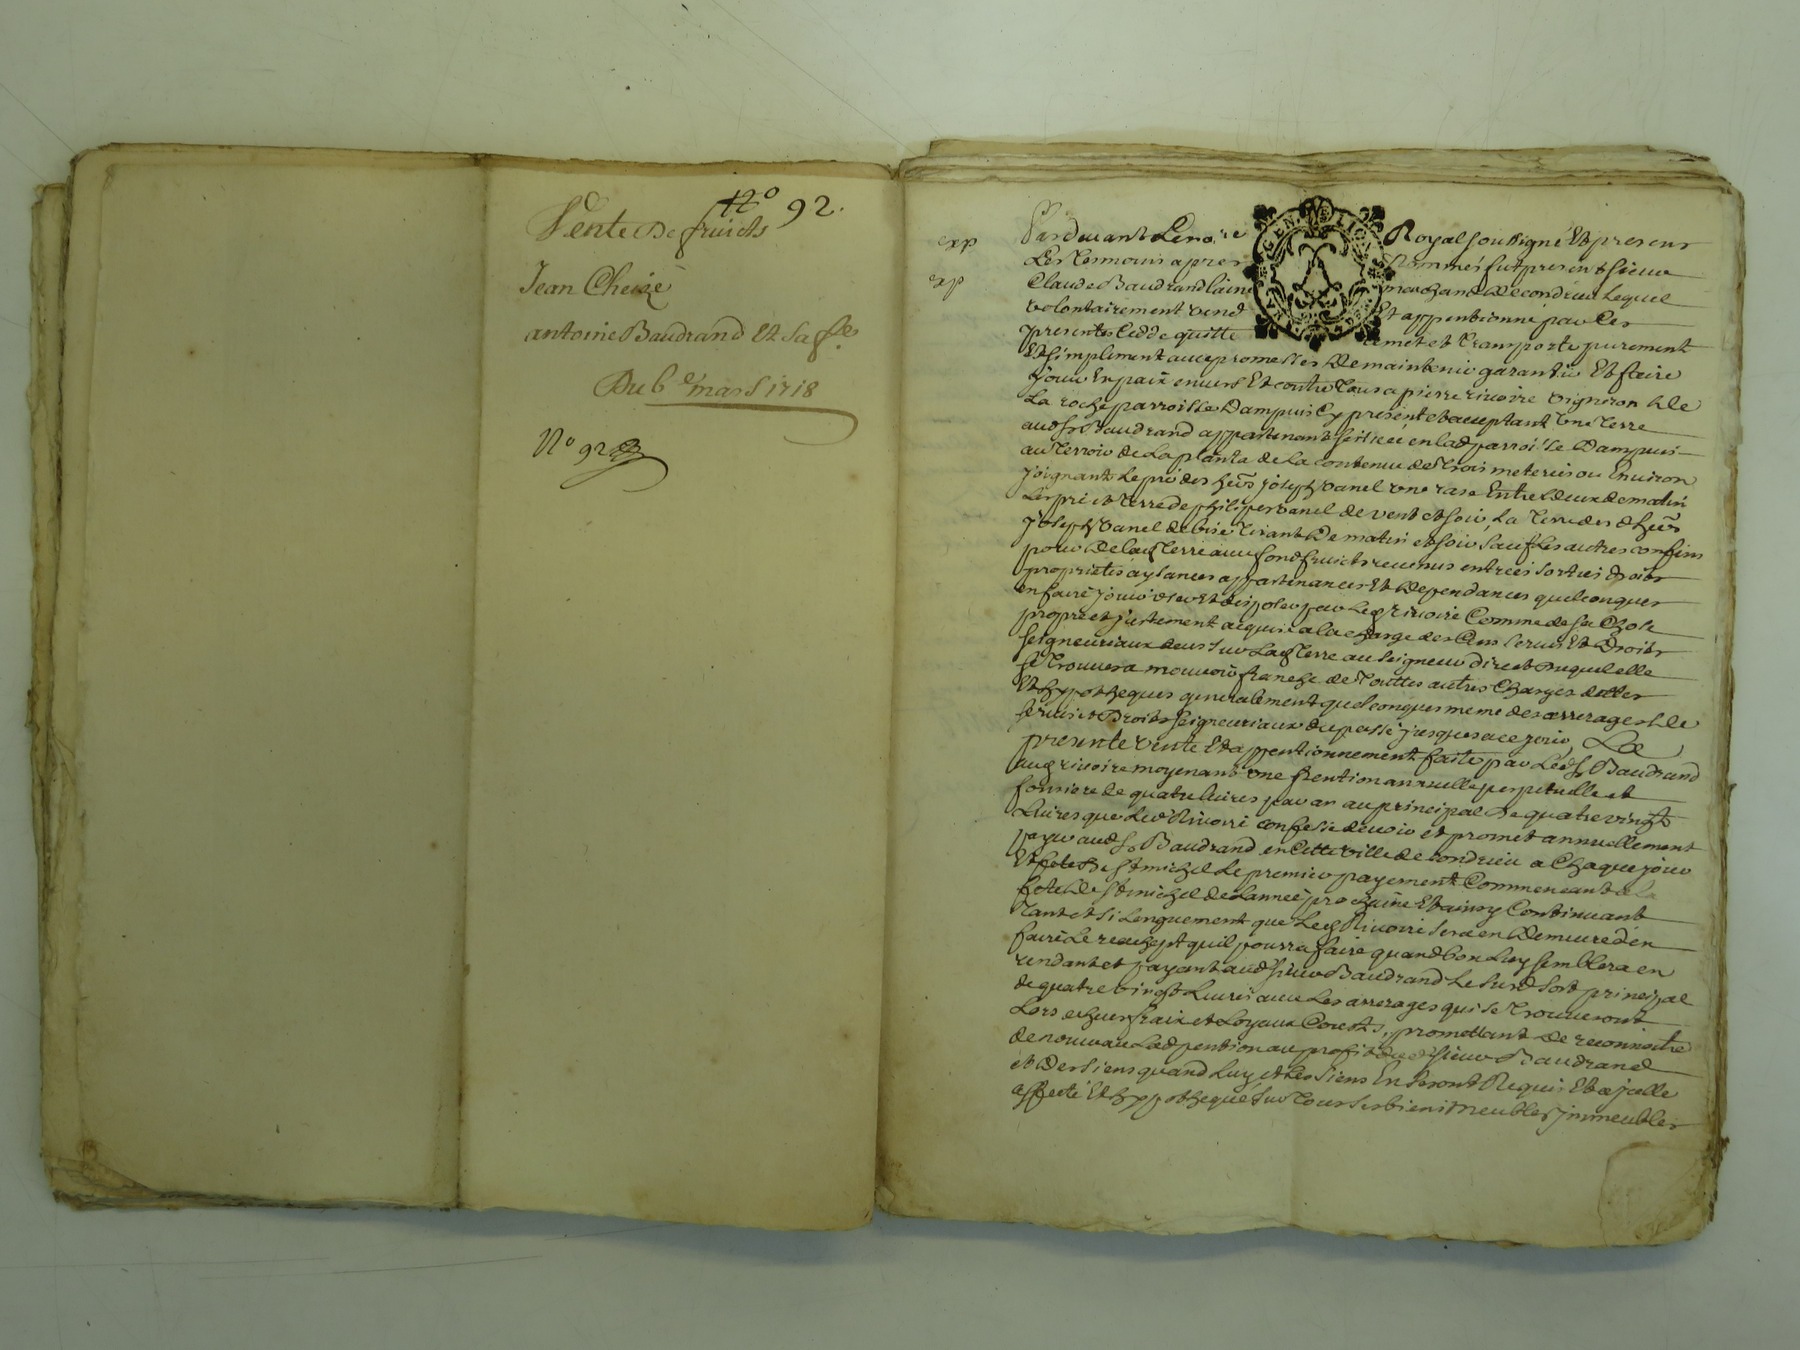 N° 92.
Vente De fruicts
Jean Cheize
antoine Baudrand Et sa fe
Du 6e mars 1718
N° 92
exp
exp
Pardevant Le no.re Royal soussigné Et presens
Les tesmoins apres nommés fut present sieur
Claude Baudrand laine marchand de condrieu Lequel
volontairement vend Et appentionne par Ces
presentes Cedde quitte remet et transporte purement
Et simplement avec promesses de maintenir garantir Et faire
jouir En paix envers Et contre tous a pierre rivoire vigneron de
La roche parroisse Dampuis Cy present et acceptant Une terre
aud sr Baudrand appartenant scituée en lad parroisse Dampuis
au terroir de La planta de la contenue de trois meterées ou Environ
joignant Le pré des hers joseph vanel une rase Entre deux de matin
Les pré et terre de philipe vanel de vent et soir, La terre des d hers
joseph vanel de bise tirant De matin et soir sauf Les autres confins
pour De lad terre avec fond fruicts revenus entrées sorties droits
proprietés aysances appartenances Et Dependances quelconques
en faire jouir user Et disposer par Led rivoire Comme de sa Chose
propre et justement acquise a la charge des Cens servis Et Droits
seigneuriaux deus sur Lad terre au seigneur direct Duquel elle
se trouvera mouvoir franche de touttes autres Charges dettes
Et hypotheques generalement quelconques meme des arrerages de
servis et Droits seigneuriaux du passé jusques a ce jour, La
presente vente Et appentionnement faite par Led sr Baudrand
aud rivoire moyenant une pention annuelle perpetuelle et
fonsiere de quatre livres par an au principal De quatre vingt
Livres que Led Rivoire confesse devoir et promet annuellement
payer aud sr Baudrand en Cette ville de condrieu a Chaque jour
Et fete De st michel Le premier payement Commencant a la
fete De st michel de Lannée prochaine Et ainsy Continuant
tant et si Longuement que Led Rivoire sera en Demeure den
faire Le reachept quil pourra faire quand bon Luy semblera en
rendant et payant aud sieur Baudrand Le susd sort principal
de quatre vingt Livres avec Les arrerages qui se trouveront
Lors echeus fraix et Loyaux Cousts, promettant De reconnoitre
de nouveau Lad pention au profit dud sieur Baudrand
et Des siens quand Luy et Les siens En seront Requis Et a jcelle
affecté Et hypothequé sur tous ses biens meubles jmmeubles